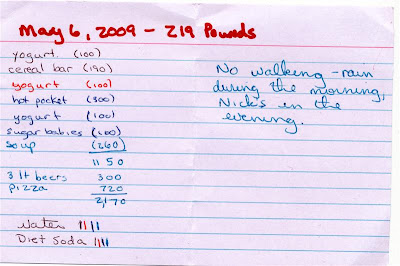 May 6, 2009 - 219 Pounds
yogurt (100)
cereal bar (190)
yogurt (100)
hot pocket (300)
yogurt (100)
sugar babies (100)
soup (260)
1150
3 lt beers 300
pizza 720
2,170
Water ||||
Diet Soda ||||
No walking - rain
during the morning,
Nick's in the
evening.